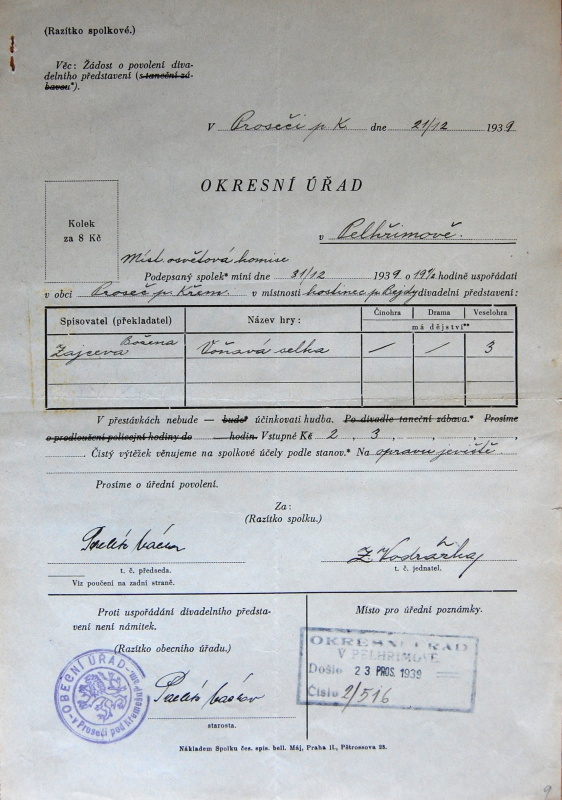 (Razítko spolkové.)
Věc: Žádost o povolení diva-
delního představení (s taneční zá-
bavou*).
V Proseči p K. dne 21/12 1939
OKRESNÍ ÚŘAD
Kolek
za 8 Kč
v Pelhřimově.
Míst. osvětová komise
Podepsaný spolek* míní dne 31/12 1939 o 19½ hodině uspořádati
v obci Proseč p. Křem. v místnosti hostinec p. Bejdy divadelní představení:
Spisovatel (překladatel) Název hry: Činohra Drama Veselohra
má dějství**
Božena
Zajcova Voňavá selka / / 3
V přestávkách nebude — bude* účinkovati hudba. Po divadle taneční zábava.* Prosíme
o prodloužení policejní hodiny do hodin. Vstupné Kč 2, 3, , , ,
Čistý výtěžek věnujeme na spolkové účely podle stanov.* Na opravu jeviště.
Prosíme o úřední povolení.
Za:
(Razítko spolku.)
Z. Vodrážka
t. č. předseda. t. č. jednatel.
Viz poučení na zadní straně.
Proti uspořádání divadelního představení není námitek.
(Razítko obecního úřadu.)
Místo pro úřední poznámky.
OKRESNÍ ÚŘAD
V PELHŘIMOVĚ
Došlo 23 PROS. 1939
Číslo 2/516
OBECNÍ ÚŘAD
v Proseči pod Křemešníkem
starosta.
Nákladem Spolku čes. spis. bell. Máj, Praha II., Pštrossova 25.
9